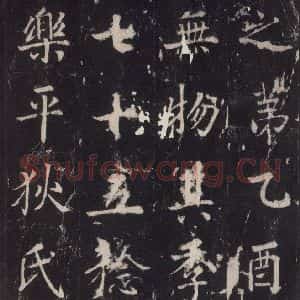 之苐乙酉
無物其季
七十五稔
樂平狄氏
Shufawang.CN